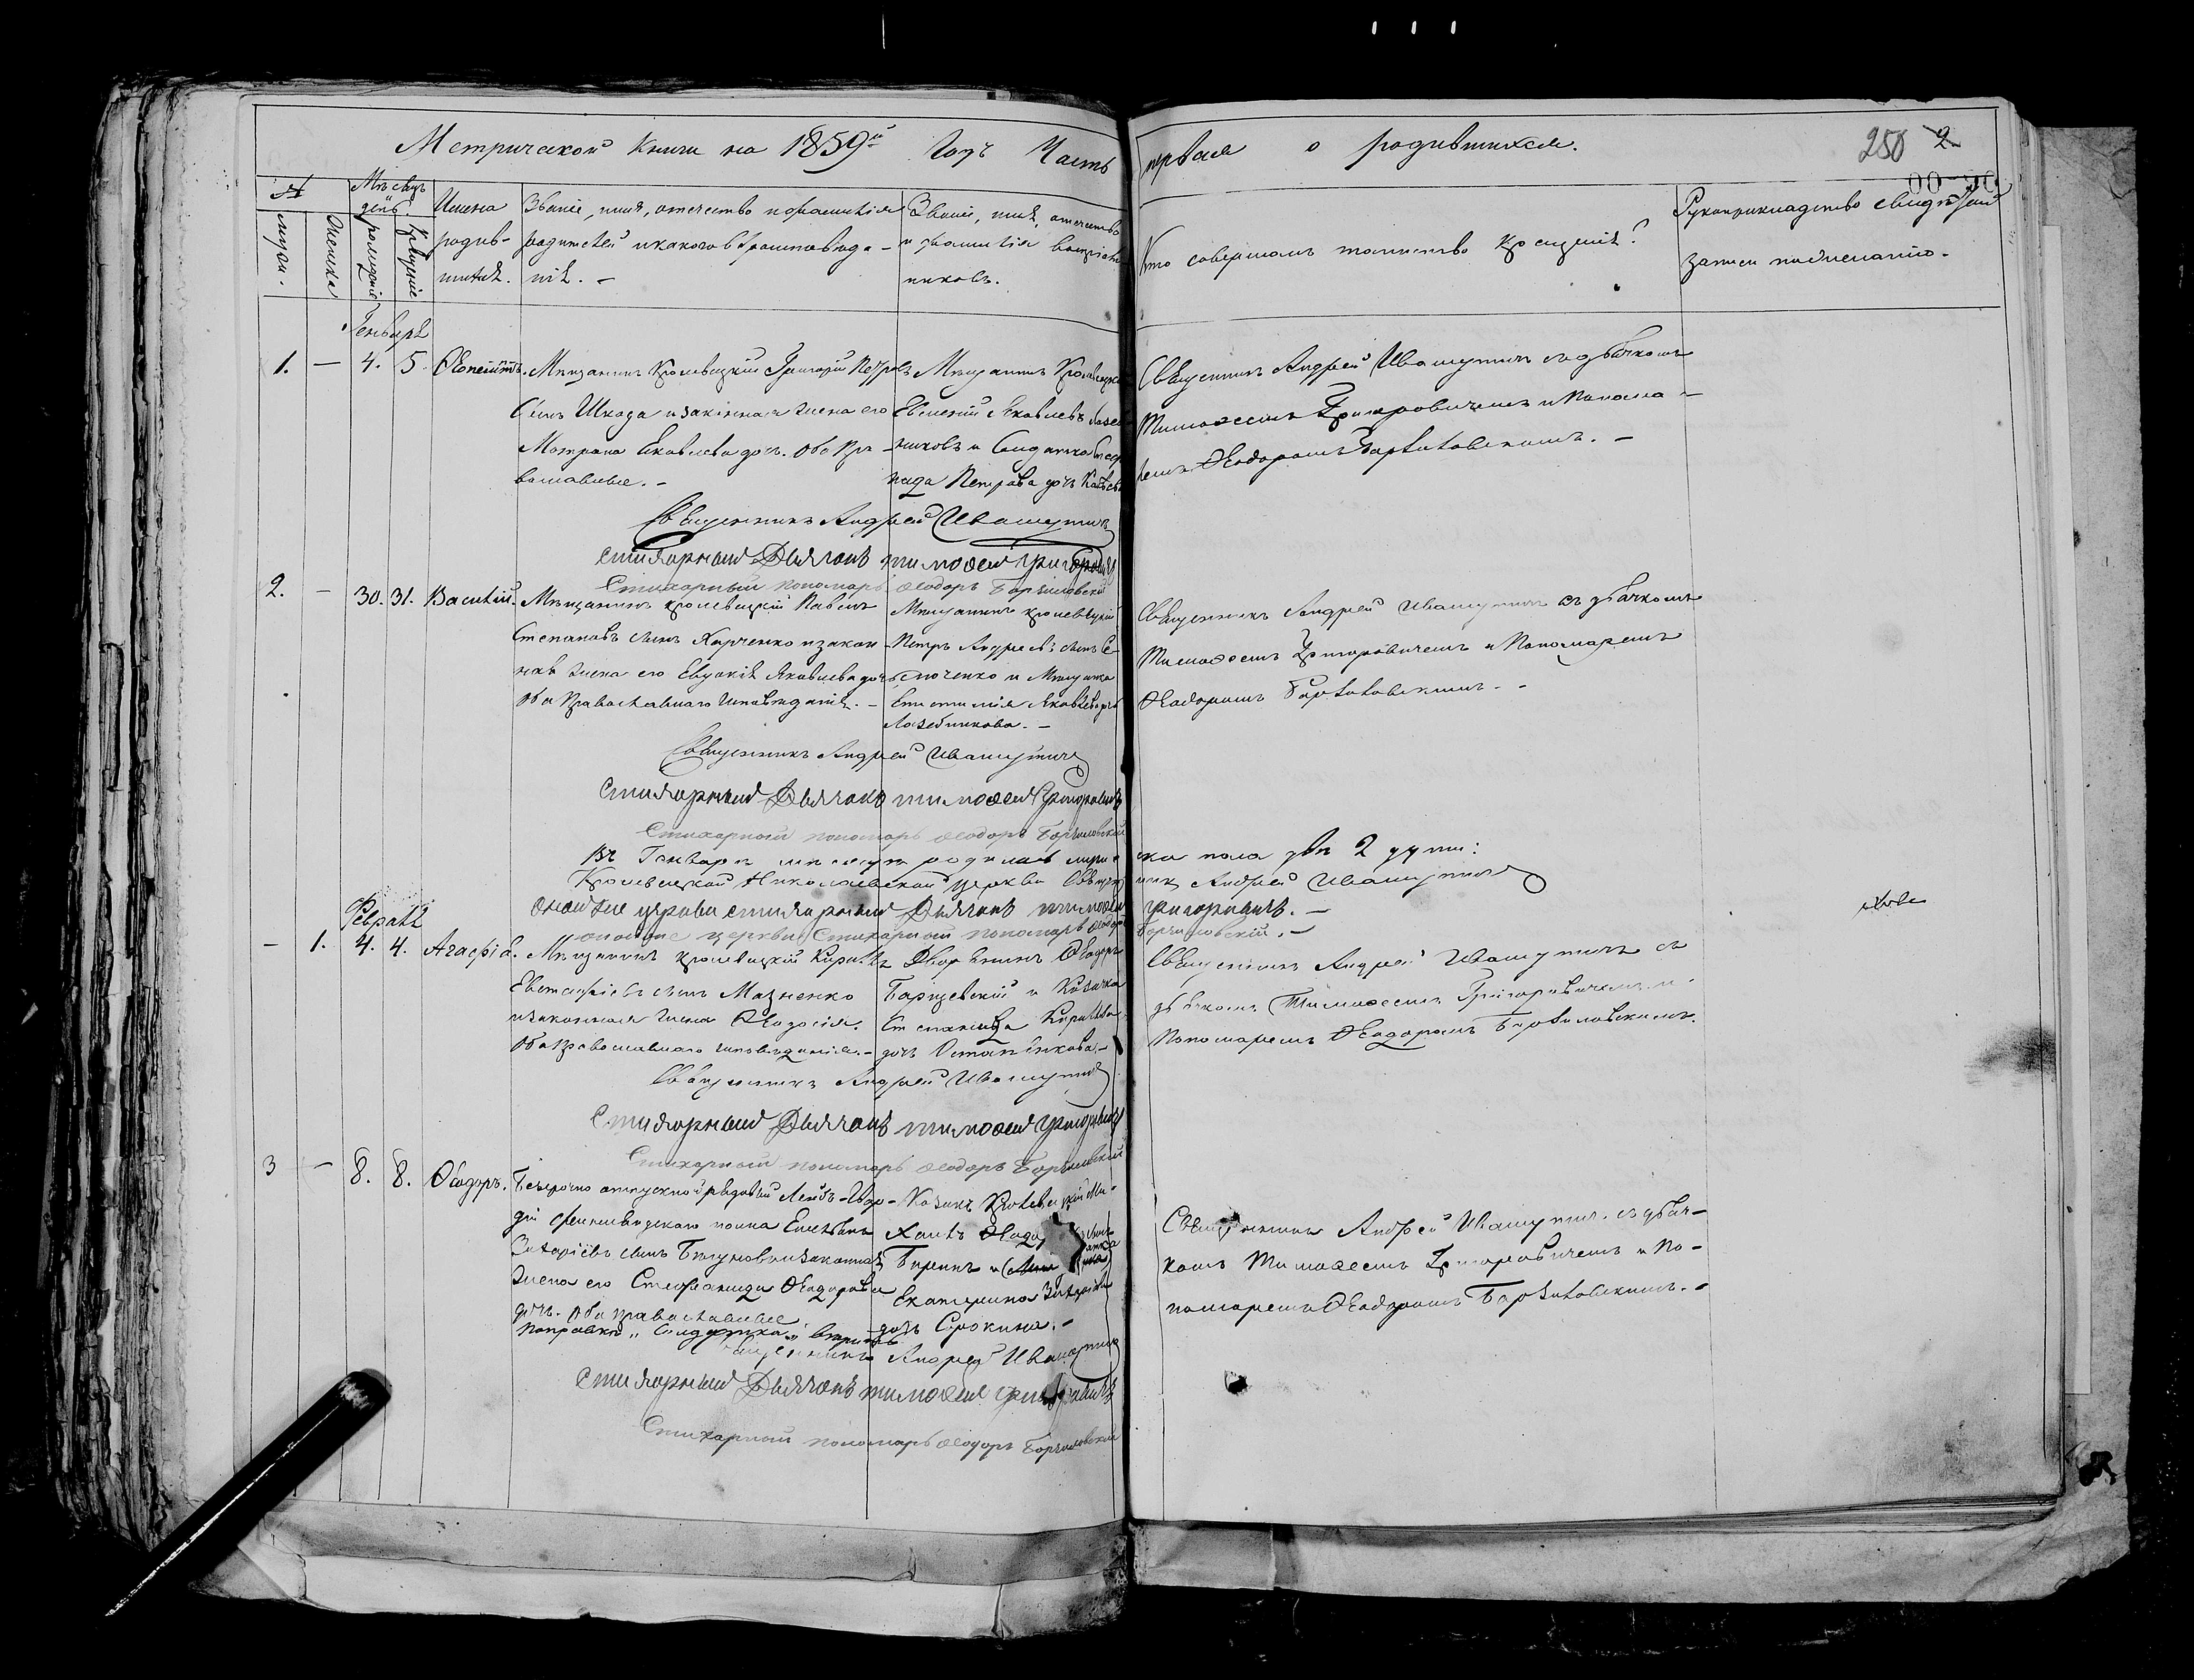 Метрической Книги на 1859й Годъ Часть первая о родившихся.
250 2
№ Мѣсяцъ день. Имена родив- шихся.
мужи. женска рожденіе крещеніе
Званіе, имя, отечество и фамилія
родителей и какого вѣроисповѣда-
нія. -
Званіе, имя, отечество
и фамилія воспріем-
никовъ.
Кто совершалъ таинство крещенія?
Рукоприкладство свидѣтелей
записи по желанію.
Генварь
1. - 4. 5.
Мѣщанинъ Кролевецкій Григорій Петровъ
Сынъ Шкода и законная жена его
Матрона Яковлева дочь. Оба Пра-
вославные. -
Мѣщанинъ Кролевецкій
Евменій Яковлевъ
никовъ и Солдатка
Петрова дочь
Священникъ Андрей Ивашутичъ съ дьячкомъ
Тимофеемъ Григоровичемъ и Понома-
ремъ Ѳеодоромъ Барзиловскимъ. -
Священникъ Андрей Ивашутичъ
Стихарный Дьячокъ Тимофей Григоровичъ
Стихарный пономарь Ѳеодоръ Барзиловскій
2. - 30. 31. Василій.
Мѣщанинъ кролевецкій Павелъ
Степановъ сынъ Харченко и закон-
ная жена его Евдокія Яковлева дочь
Оба Православнаго исповѣданія. -
Мѣщанинъ кролевецкій
Петръ Андреевъ сынъ
и Мѣщанка
Яковлева дочь
Лазебникова. -
Священникъ Андрей Ивашутичъ съ дьячкомъ
Тимофеемъ Григоровичемъ и Пономаремъ
Ѳеодоромъ Барзиловскимъ. -
Священникъ Андрей Ивашутичъ
Стихарный Дьячокъ Тимофей Григоровичъ
Стихарный пономарь Ѳеодоръ Барзиловскій
Въ Генварѣ мѣсяцѣ родилось мужеска пола двѣ 2 дути:
Кролевецкой Николаевской церкви Священникъ Андрей Ивашутичъ
Оной же церкви стихарный Дьячокъ Тимофей Григоровичъ. -
оной же церкви Стихарный пономарь Ѳеодоръ Барзиловскій. -
Февраль
- 1. 4. 4. Агафія.
Мѣщанинъ кролевецкій Кириллъ
Евстафіевъ сынъ Мазненко
и законная жена Ѳеодосія.
Оба Православнаго исповѣданія. -
Дворянинъ Ѳеодоръ
и Казачка
Степанида Кириллова
дочь
Священникъ Андрей Ивашутичъ съ
дьячкомъ Тимофеемъ Григоровичемъ и
Пономаремъ Ѳеодоромъ Барзиловскимъ.
Священникъ Андрей Ивашутичъ
Стихарный Дьячокъ Тимофей Григоровичъ
Стихарный пономарь Ѳеодоръ Барзиловскій
3 - 8. 8. Ѳеодоръ.
Безсрочно отпускной рядовый Лейбъ-Гвар-
діи Финляндскаго полка
Захаріевъ сынъ и законная
жена его Стефанида Ѳеодорова
дочь. Оба православные
Поправка "Солдатка"
Казакъ Кролевецкій Ми-
хаилъ
и
Екатерина Захаріева
дочь Сорокина. -
Священникъ Андрей Ивашутичъ съ дьяч-
комъ Тимофеемъ Григоровичемъ и По-
номаремъ Ѳеодоромъ Барзиловскимъ. -
Священникъ Андрей Ивашутичъ
Стихарный Дьячокъ Тимофей Григоровичъ
Стихарный пономарь Ѳеодоръ Барзиловскій